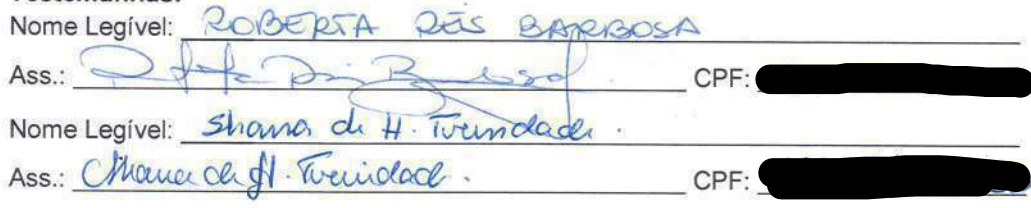 Testemunhas:
Nome Legível: ROBERTA REIS BARBOSA
Ass.: CPF:
Nome Legível: Shana de H. Trindade.
Ass.: Shana de H. Trindade. CPF: